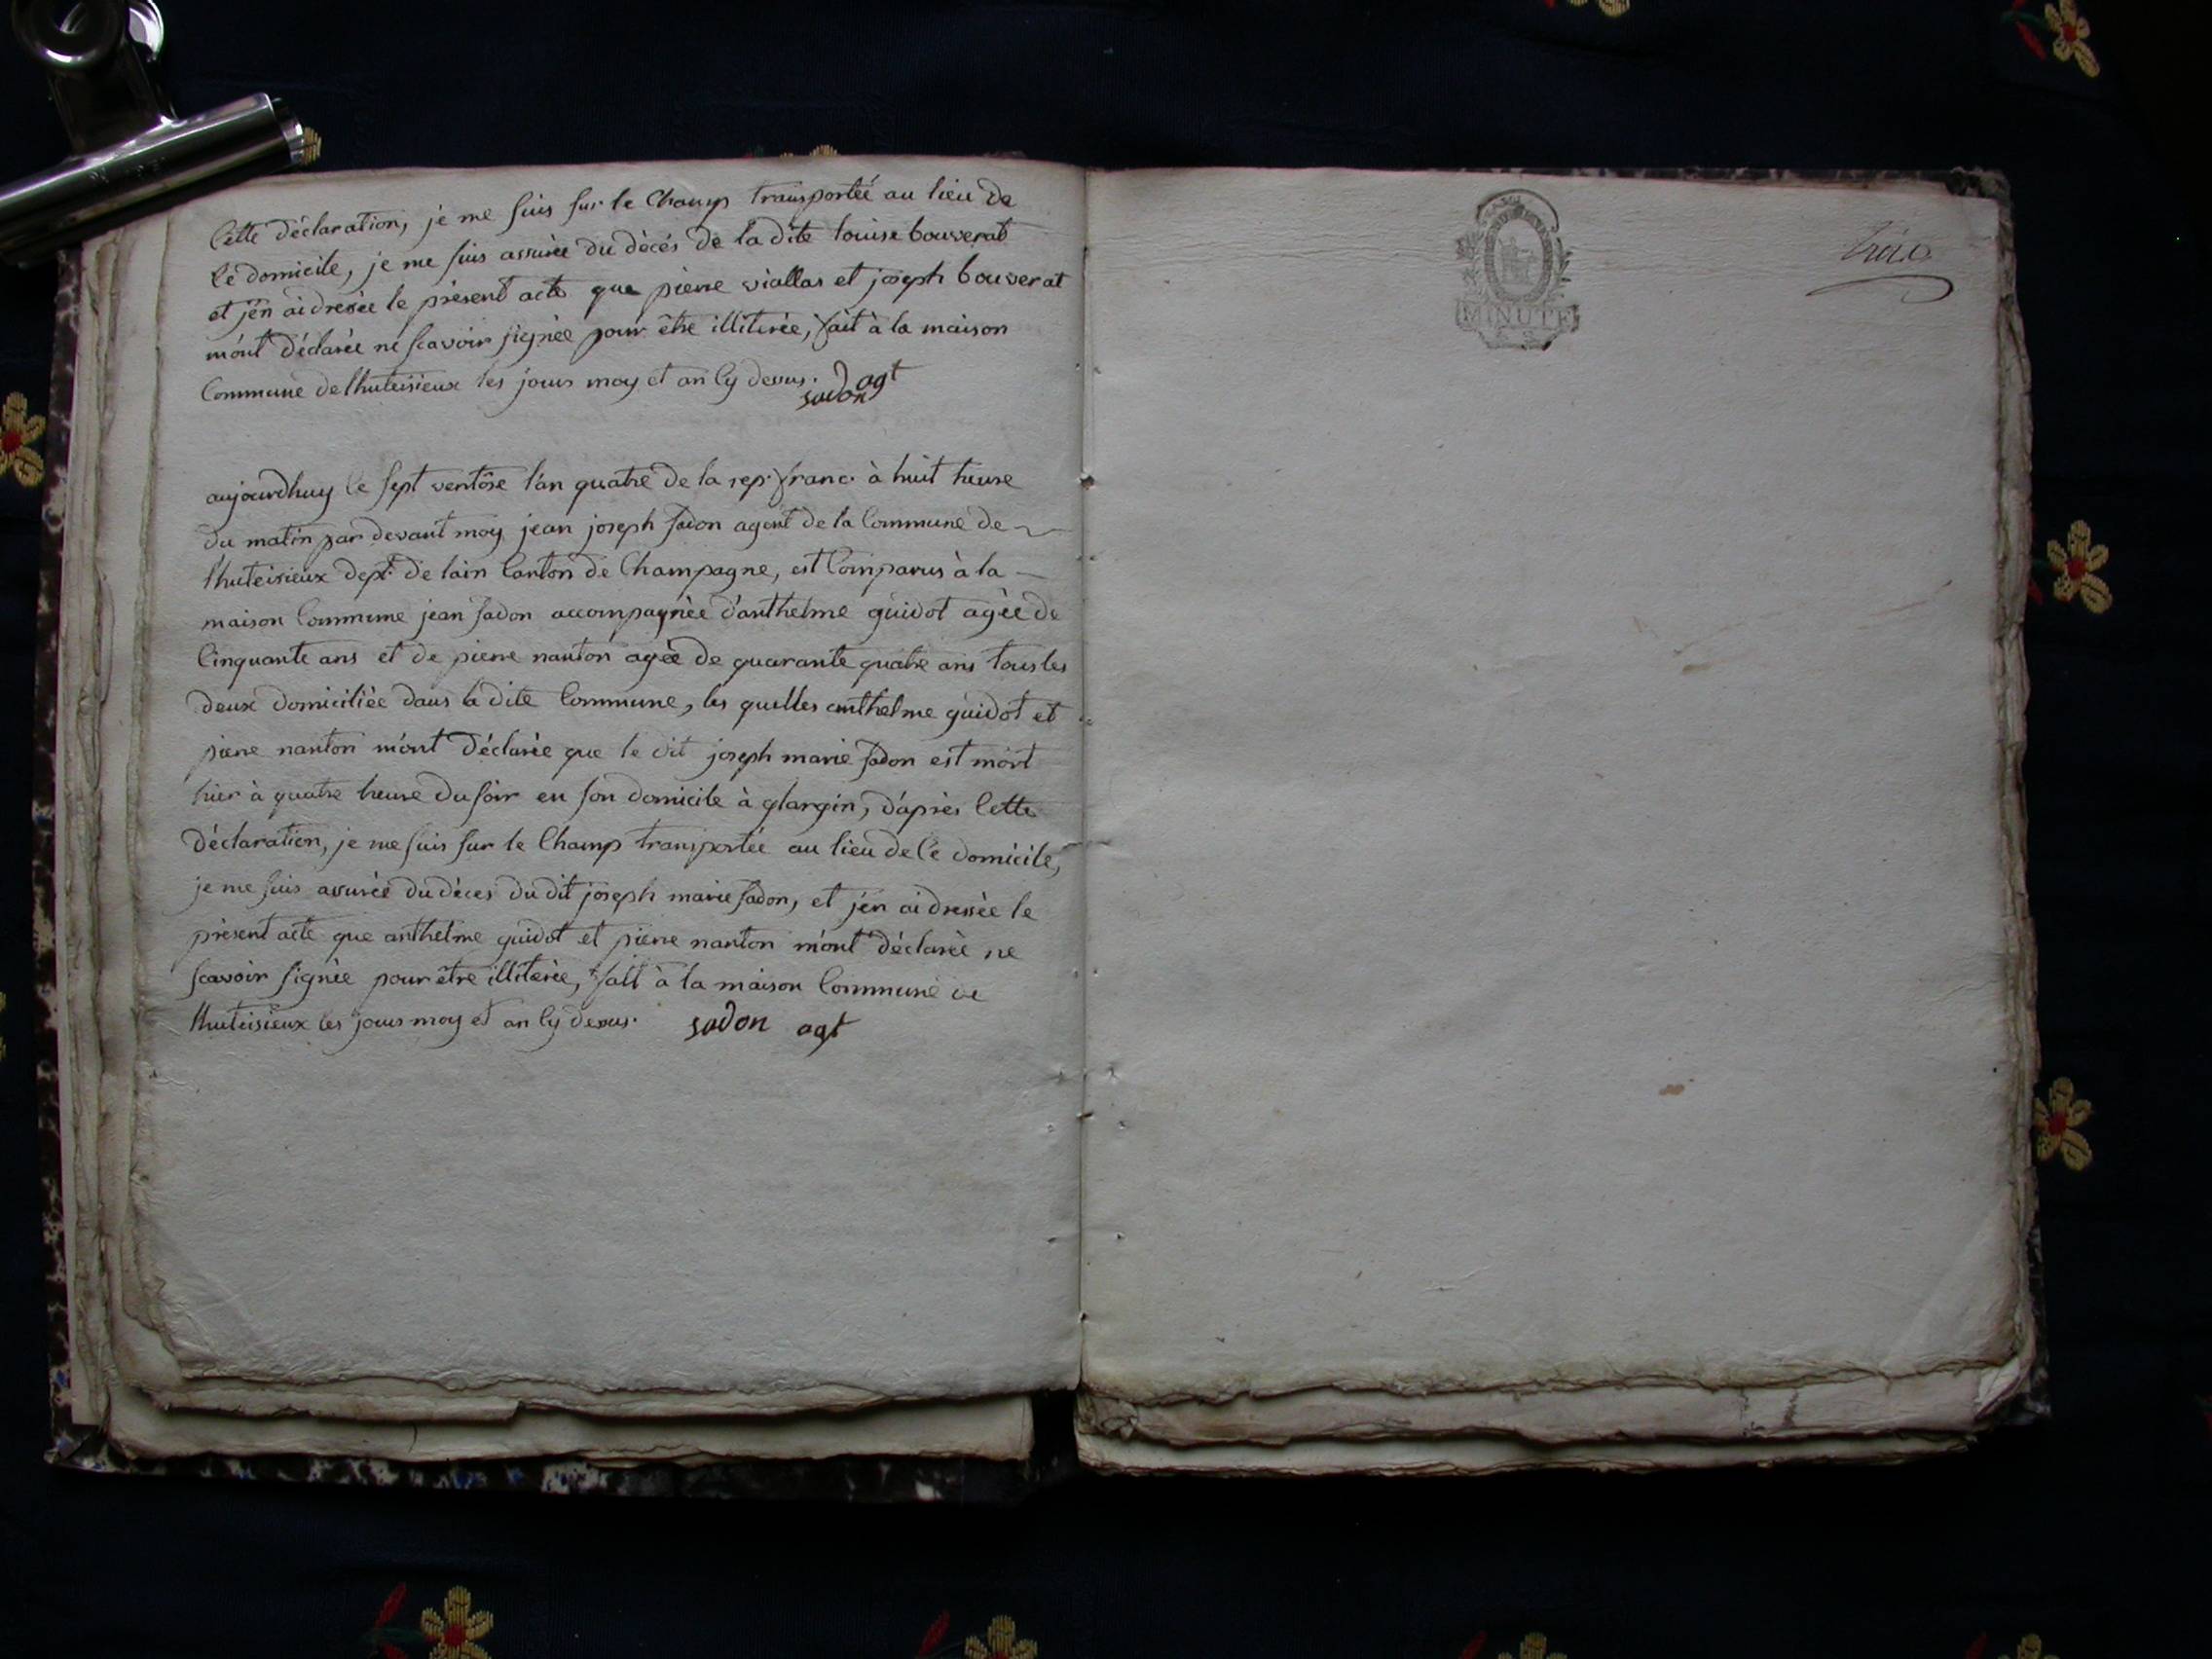 Cette déclaration, je me suis sur le Champ transportée au lieu de
Ce domicile, je me suis assurée du décés de la dite louise bouverat
et j'én ai dressée le présent acte que pierre viallas et joseph bouverat
m'ont déclarée ne scavoir signée pour être illiterée, fait à la maison
Commune de lhuteisieux les jours moy et an Cy desus.
sadon agt
aujourdhuy le sept ventôse l'an quatre de la rep. franc. à huit heure
du matin par devant moy jean joseph sadon agent de la Commune de
lhuteisieux dept. de lain Canton de Champagne, est Comparus à la
maison Commune jean sadon accompagnée d'anthelme guidot agée de
Cinquante ans et de pierre nanton agée de quarante quatre ans tous les
deux domiciliée dans la dite Commune, les quelles anthelme guidot et
pierre nanton m'ont déclarée que le dit joseph marie sadon est mort
hier à quatre heure du soir en son domicile à glargin, d'après Cette
déclaration, je me suis sur le Champ transportée au lieu de Ce domicile,
je me suis assurée du déces du dit joseph marie sadon, et j'en ai dressée le
présent acte que anthelme guidot et pierre nanton m'ont déclarée ne
scavoir signée pour être illiterée, fait à la maison Commune de
lhuteisieux les jours moy et an Cy desus. sadon agt
MINUTE